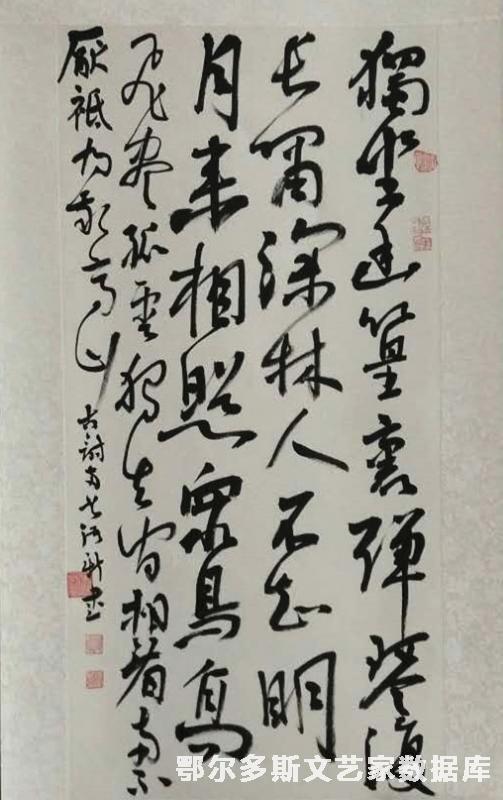 獨坐幽篁裏彈琴復
长嘯深林人不知明
月来相照眾鳥高
飛盡孤雲獨去閒相看两不
厭祗有敬亭山
古詩两首 书
鄂尔多斯文艺家数据库